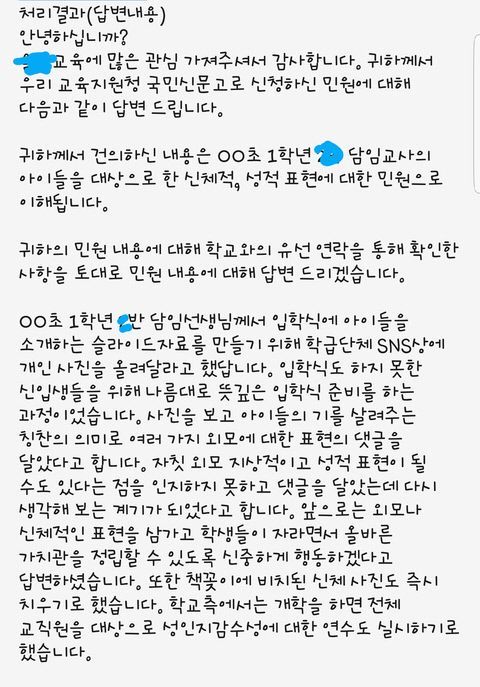 처리결과(답변내용)
안녕하십니까?
교육에 많은 관심 가져주셔서 감사합니다. 귀하께서
우리 교육지원청 국민신문고로 신청하신 민원에 대해
다음과 같이 답변 드립니다.
귀하께서 건의하신 내용은 OO초 1학년 담임교사의
아이들을 대상으로 한 신체적, 성적 표현에 대한 민원으로
이해됩니다.
귀하의 민원 내용에 대해 학교와의 유선 연락을 통해 확인한
사항을 토대로 민원 내용에 대해 답변 드리겠습니다.
OO초 1학년 반 담임선생님께서 입학식에 아이들을
소개하는 슬라이드자료를 만들기 위해 학급단체 SNS상에
개인 사진을 올려달라고 했답니다. 입학식도 하지 못한
신입생들을 위해 나름대로 뜻깊은 입학식 준비를 하는
과정이었습니다. 사진을 보고 아이들의 기를 살려주는
칭찬의 의미로 여러 가지 외모에 대한 표현의 댓글을
달았다고 합니다. 자칫 외모 지상적이고 성적 표현이 될
수도 있다는 점을 인지하지 못하고 댓글을 달았는데 다시
생각해 보는 계기가 되었다고 합니다. 앞으로는 외모나
신체적인 표현을 삼가고 학생들이 자라면서 올바른
가치관을 정립할 수 있도록 신중하게 행동하겠다고
답변하셨습니다. 또한 책꽂이에 비치된 신체 사진도 즉시
치우기로 했습니다. 학교측에서는 개학을 하면 전체
교직원을 대상으로 성인지감수성에 대한 연수도 실시하기로
했습니다.